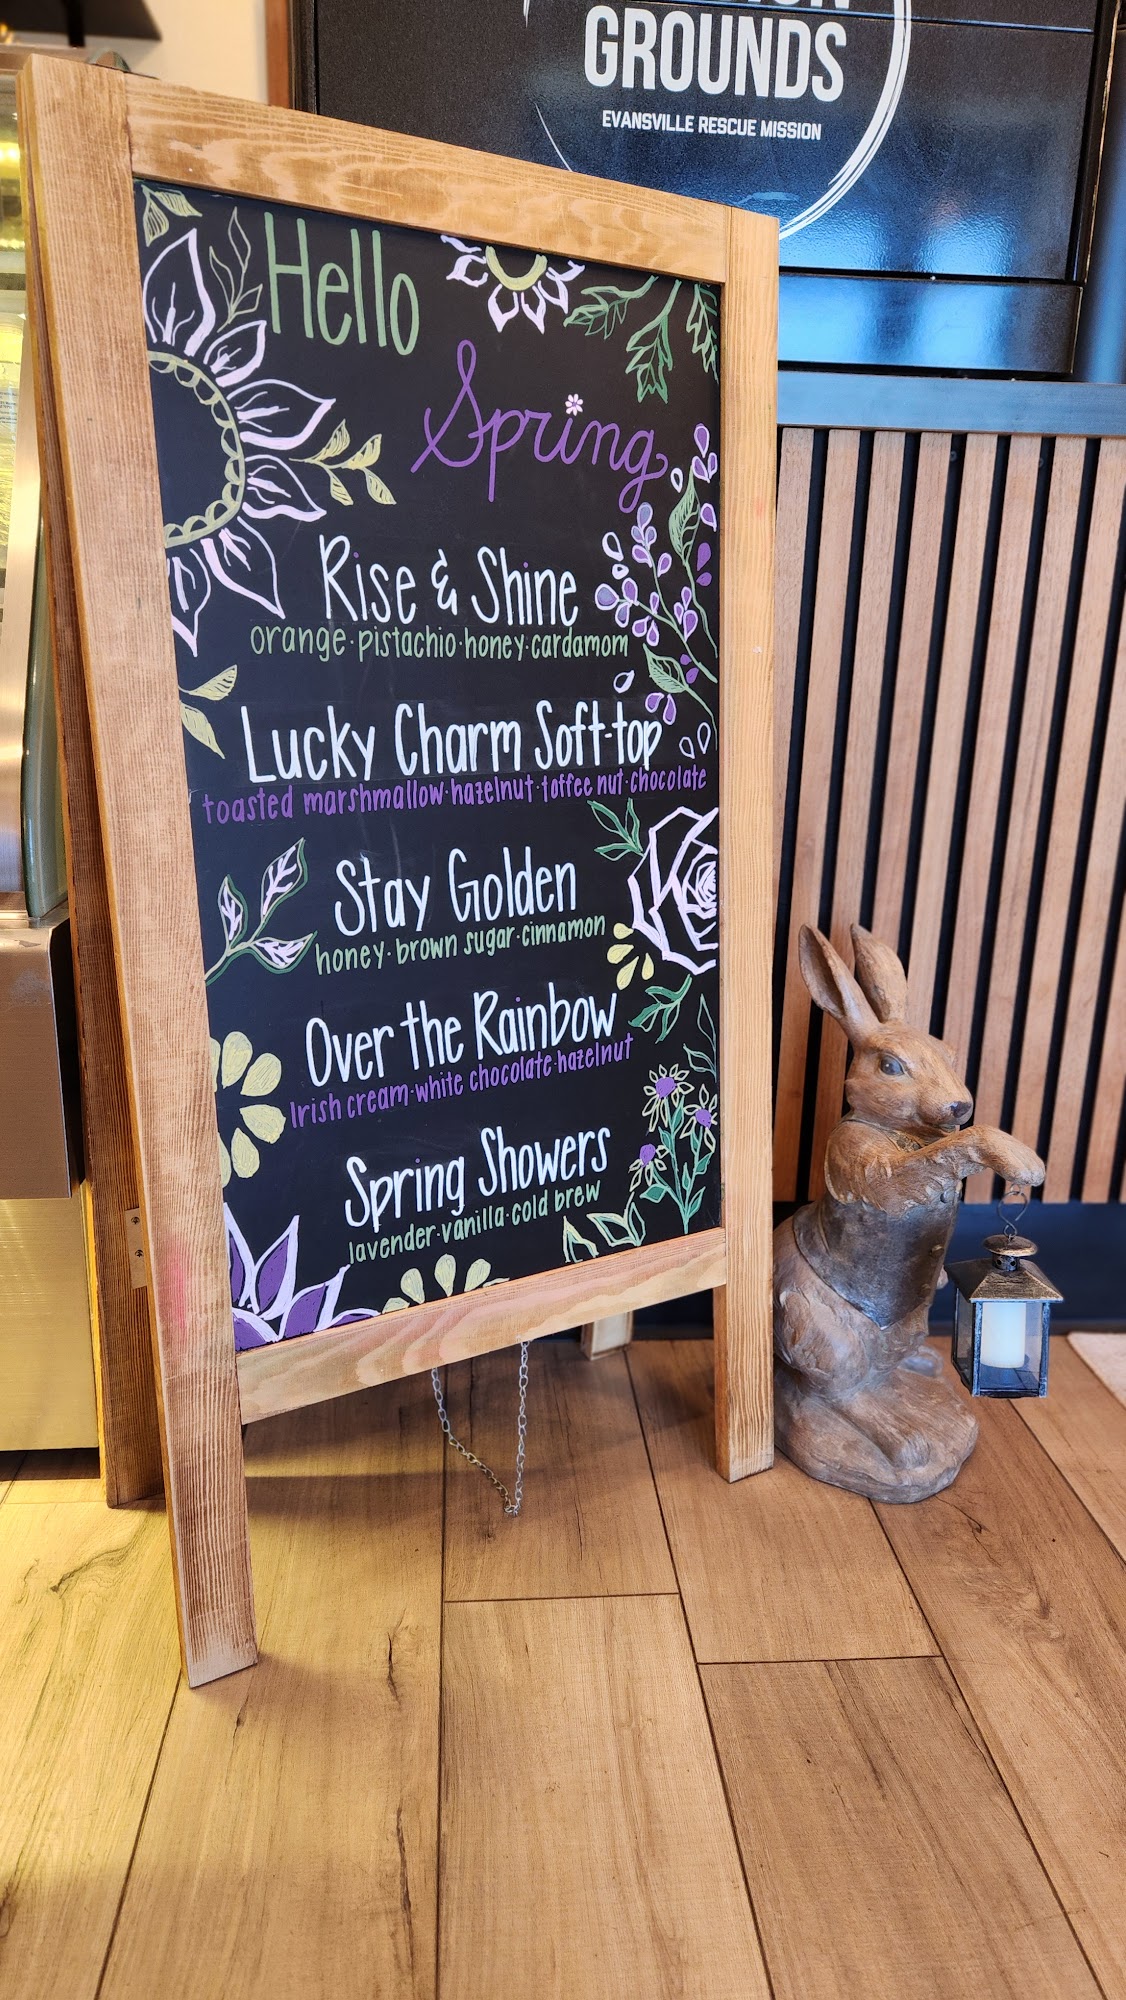 GROUNDS
EVANSVILLE RESCUE MISSION
Hello
Spring
Rise & Shine
orange·pistachio·honey·cardamom
Lucky Charm Soft-top
toasted marshmallow·hazelnut·toffee nut·chocolate
Stay Golden
honey·brown sugar·cinnamon
Over the Rainbow
Irish cream·white chocolate·hazelnut
Spring Showers
lavender·vanilla·cold brew